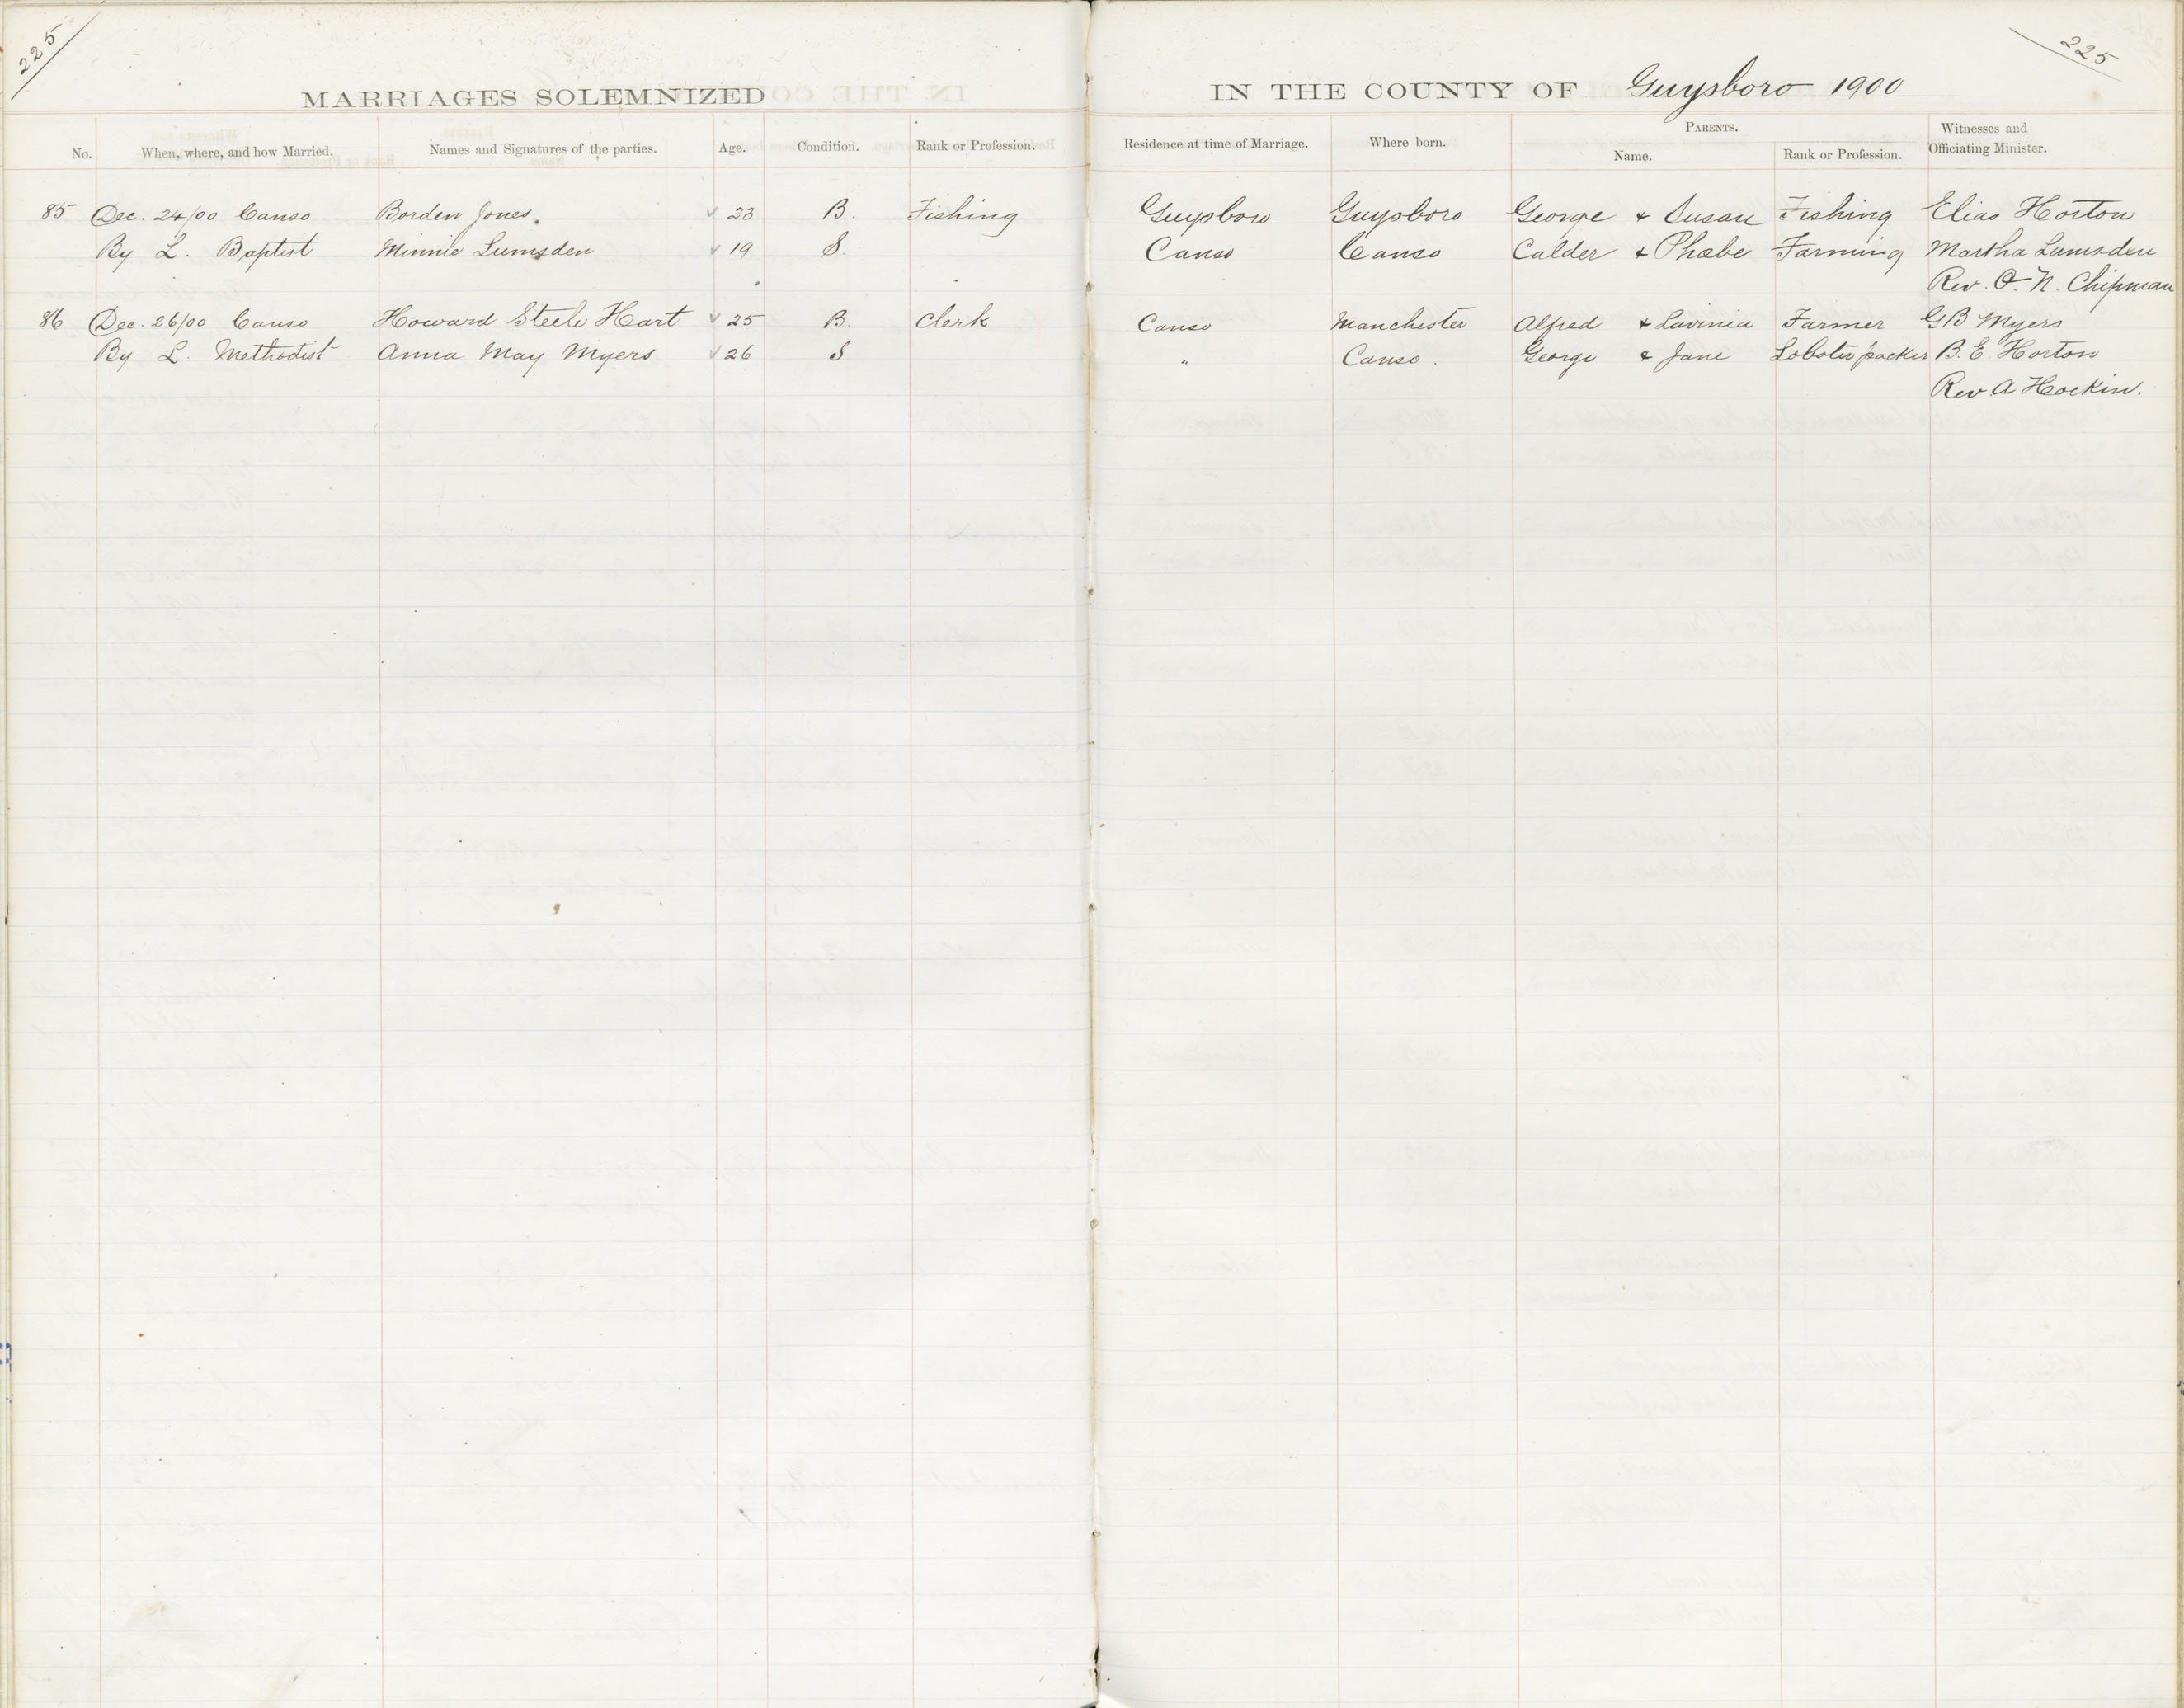 225
225
MARRIAGES SOLEMNIZED IN THE COUNTY OF Guysboro 1900
No. When, where, and how Married. Names and Signatures of the parties. Age. Condition. Rank or Profession. Residence at time of Marriage. Where born. PARENTS. Name. Rank or Profession. Witnesses and Officiating Minister.
85 Dec. 24/00 Canso Borden Jones. 23 B. Fishing Guysboro Guysboro George & Susan Fishing Elias Horton
By L. Baptist Minnie Lumsden 19 S. Canso Canso Calder & Phœbe Farming Martha Lumsden
Rev. O. N. Chipman
86 Dec. 26/00 Canso Howard Steele Hart 25 B. Clerk Canso Manchester Alfred & Lavinia Farmer G B Myers
By L. Methodist Anna May Myers 26 S " Canso. George & Jane Lobster packer B. E. Horton
Rev A Hockin.